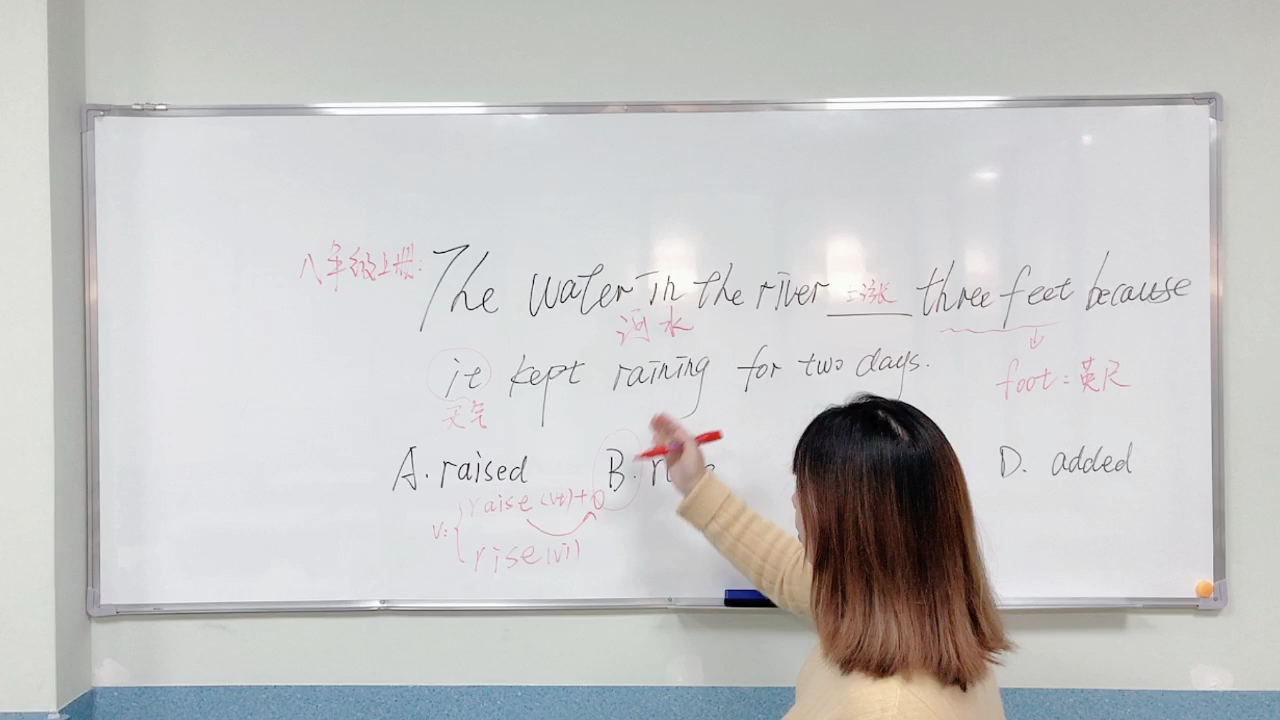 八年级上册: The water in the river 上涨 three feet because
河水
it kept raining for two days.
foot: 英尺
天气
A. raised B. D. added
v: raise (vt) + O
rise (vi)